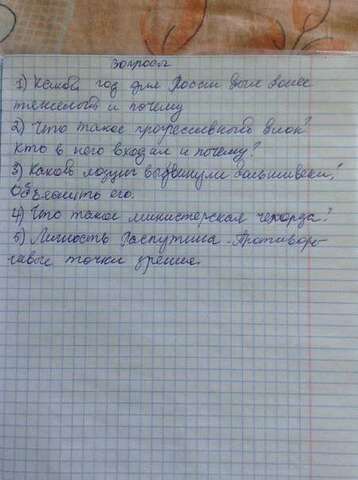 вопросы
1) Какой год для России был более
тяжелый и почему
2) Что такое прогрессивный блок?
Кто в него входил и почему?
3) Каков лозунг выдвинули большевики?
Объяснить его.
4) Что такое министерская чехарда?
5) Личность Распутина. Противоре-
чивые точки зрения.